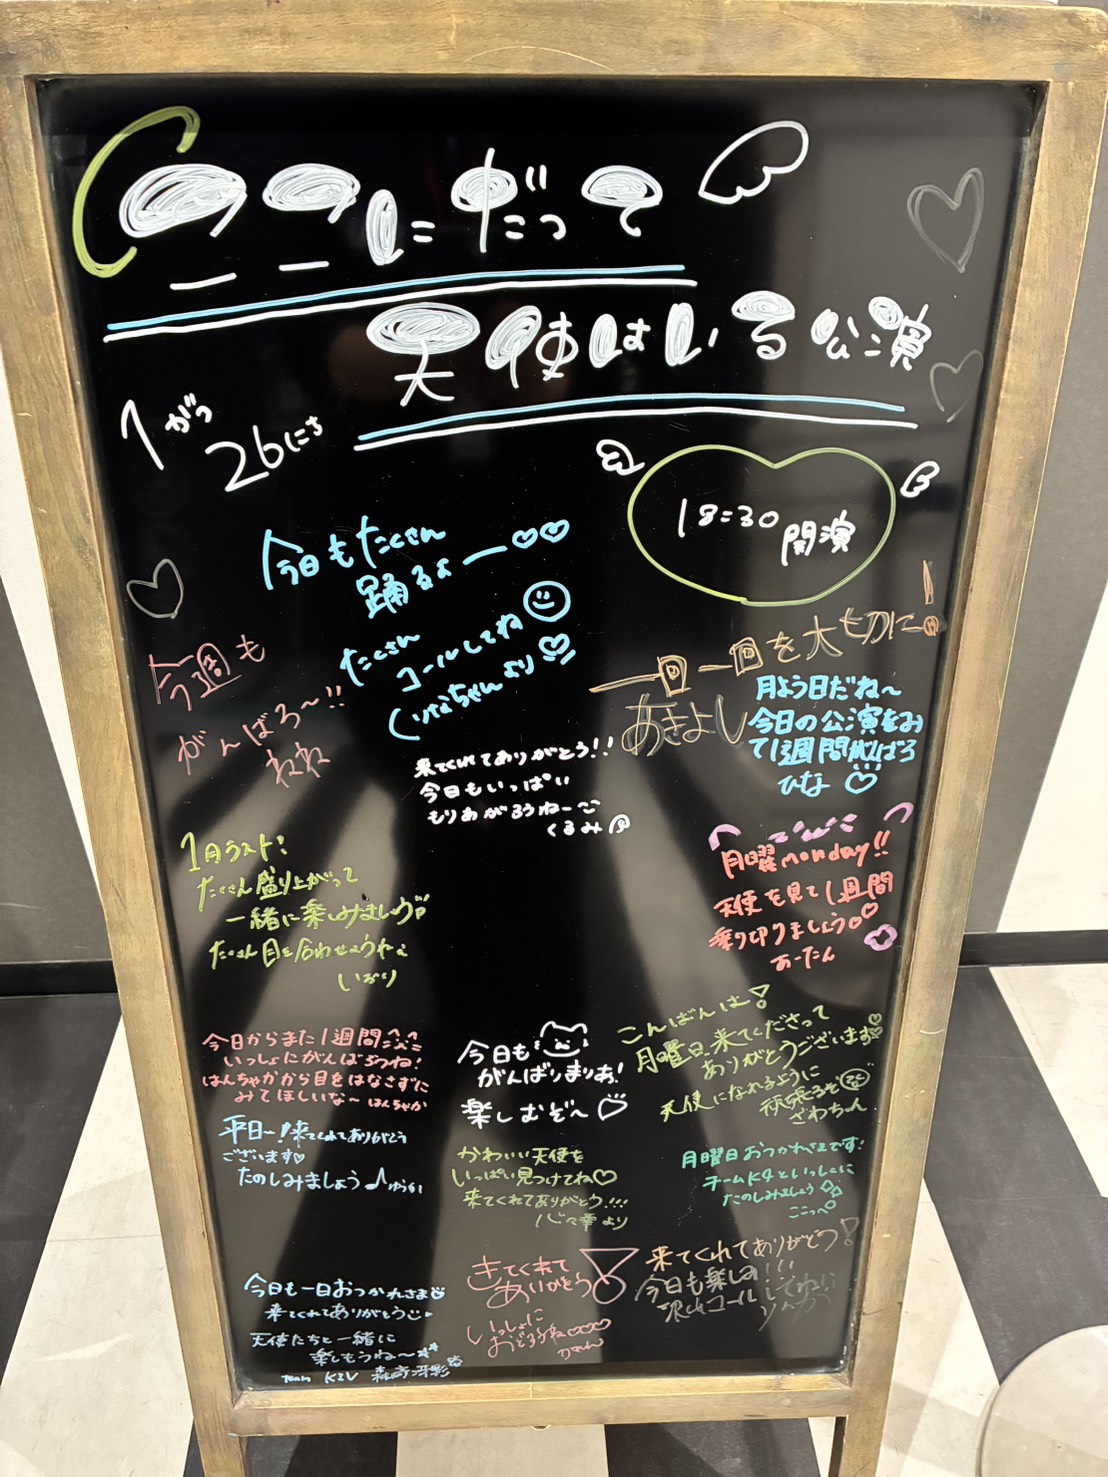 ここにだって
天使はいる公演
1がつ
26にち
18:30
開演
今日もたくさん
踊るよー♡♡
たくさん
コールしてね
りなちゃんより
今週も
がんばろ〜!!
ねね
一回一回を大切に!
あきよし
月よう日だね〜
今日の公演をみ
て1週間がんばろ
ひな♡
来てくれてありがとう!!
今日もいっぱい
もりあがろうねー
くるみ
1月ラスト!
たくさん盛り上がって
一緒に楽しみましょう
たくさん目を合わせようね
いおり
月曜monday!!
天使を見て1週間
乗り切りましょう
あーたん
今日からまた1週間
いっしょにがんばろうね!
はんちゃかから目をはなさずに
みてほしいな〜 はんちゃか
今日も
がんばりまりあ!
楽しむぞ〜♡
こんばんは!
月曜日、来てくださって
ありがとうございます
天使になれるように
頑張るぞ
ざわちゃん
平日〜!来てくれてありがとう
ございます♡
たのしみましょう♪ ゆうか
かわいい天使を
いっぱい見つけてね♡
来てくれてありがとう!!!
心々幸より
月曜日おつかれさまです!
チームK4といっしょに
たのしみましょう
ここっぺ
今日も一日おつかれさま
来てくれてありがとう
天使たちと一緒に
楽しもうね〜
Team KIV 森﨑冴彩
きてくれて
ありがとう!
いっしょに
おどろうね♡♡♡
来てくれてありがとう!
今日も楽しみ!!!
沢山コールしてね